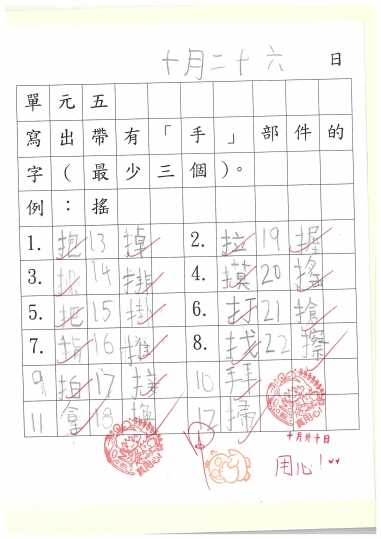 十月二十六 日
單元五
寫出帶有「手」部件的
字（最少三個）。
例：搖
1. 抱 13 掉 2. 拉 19 握
3. 14 排 4. 摸 20 搖
5. 把 15 掛 6. 打 21 搶
7. 指 16 推 8. 找 22 擦
9 拍 17 10 拜
11 拿 18 12 掃
十月廿十日
用心！